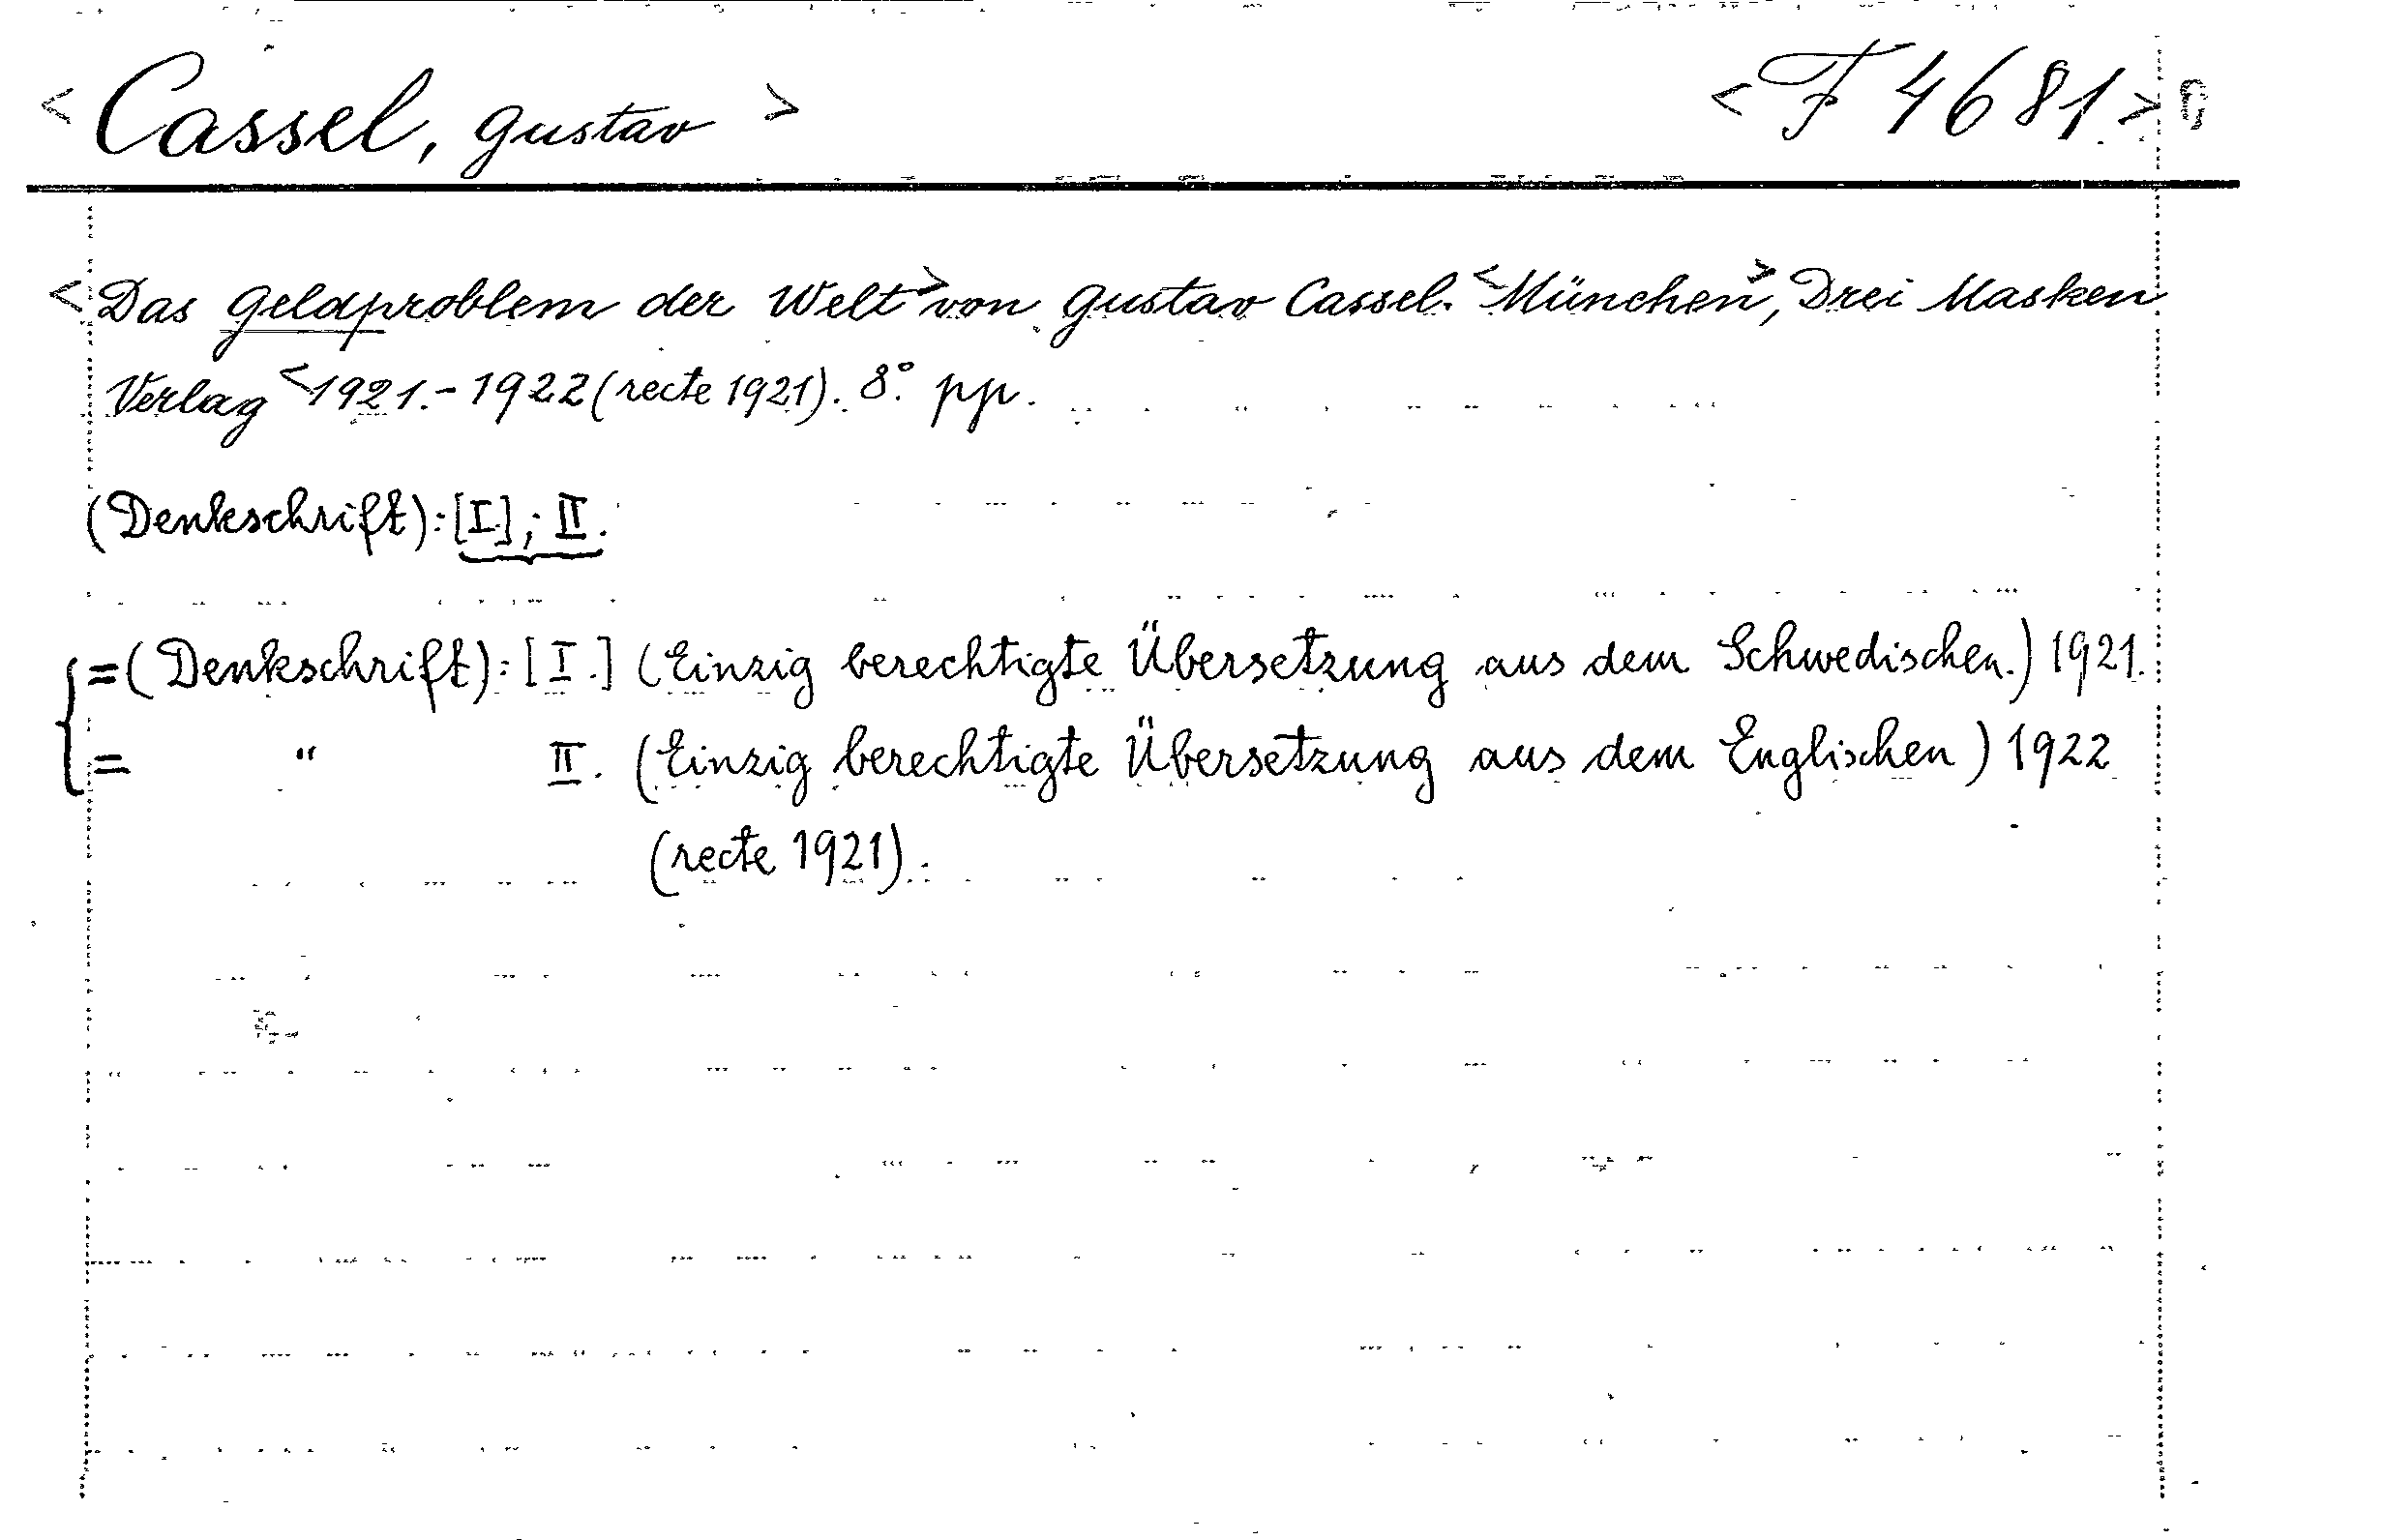 <Cassel, Gustav> <F 4681>
<Das Geldproblem der Welt> von Gustav Cassel. <München>, Drei Masken
Verlag <1921.-1922 (recte 1921). 8°. pp.
(Denkschrift): [I.]; II.
=(Denkschrift): [I.] (Einzig berechtigte Übersetzung aus dem Schwedischen.) 1921.
= " II. (Einzig berechtigte Übersetzung aus dem Englischen) 1922
(recte 1921).